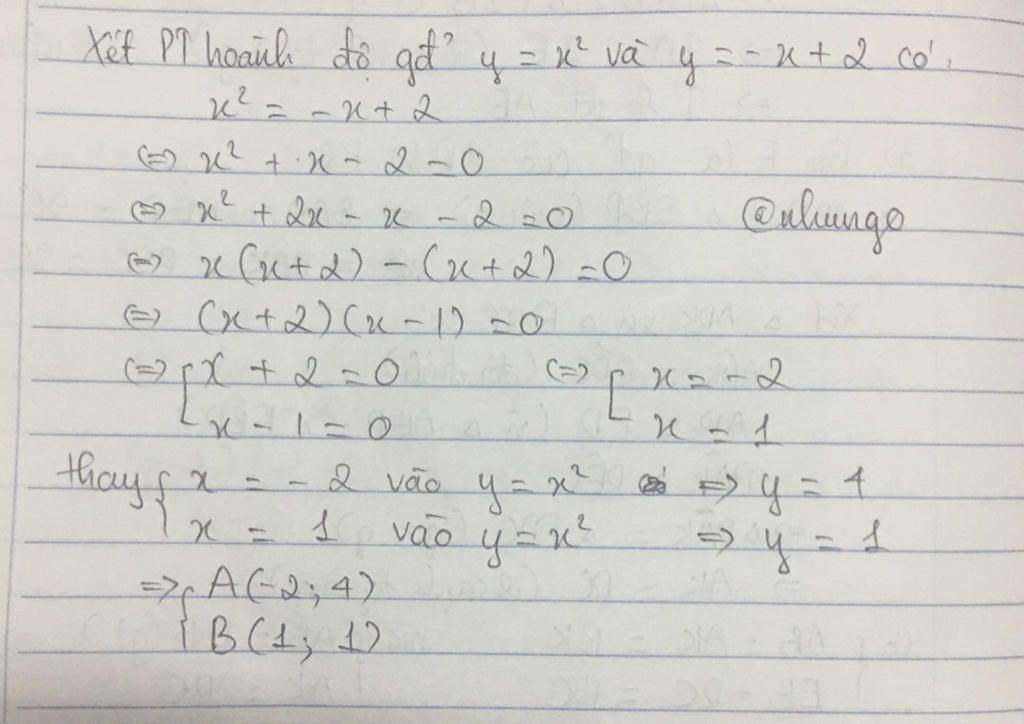 Xét PT hoành độ gđ² y = x² và y = -x + 2 có:
x² = -x + 2
⇔ x² + x - 2 = 0
⇔ x² + 2x - x - 2 = 0 @nhungo
⇔ x(x+2) - (x+2) = 0
⇔ (x+2)(x-1) = 0
⇔ [ x + 2 = 0 ⇔ [ x = -2
x - 1 = 0 x = 1
thay { x = -2 vào y = x² ⇒ y = 4
x = 1 vào y = x² ⇒ y = 1
⇒ { A(-2; 4)
B(1; 1)